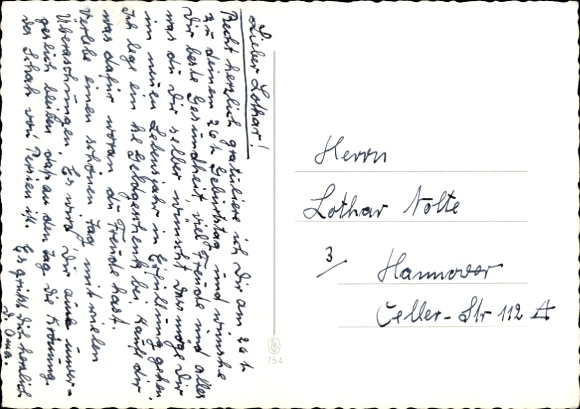 Lieber Lothar!
Recht herzlich gratuliere ich Dir am 26ten
zu deinem 26ten Geburtstag und wünsche
Dir beste Gesundheit, viel Freude und alles
was du Dir selber wünschst das möge Dir
im neuen Lebensjahr in Erfüllung gehen.
Ich lege ein kl Geldgeschenk bei kauft dir
was dafür woran du Freude hast.
Verlebe einen schönen Tag mit vielen
Überaschungen. Es wird Dir unver-
geslich bleiben das an den Tag die Krönung
des Schah von Persien ist. Es grüßt Dich herzlich
d. Oma.
Herrn
Lothar Nolte
3
Hannover
Celler-Str 112 A
754